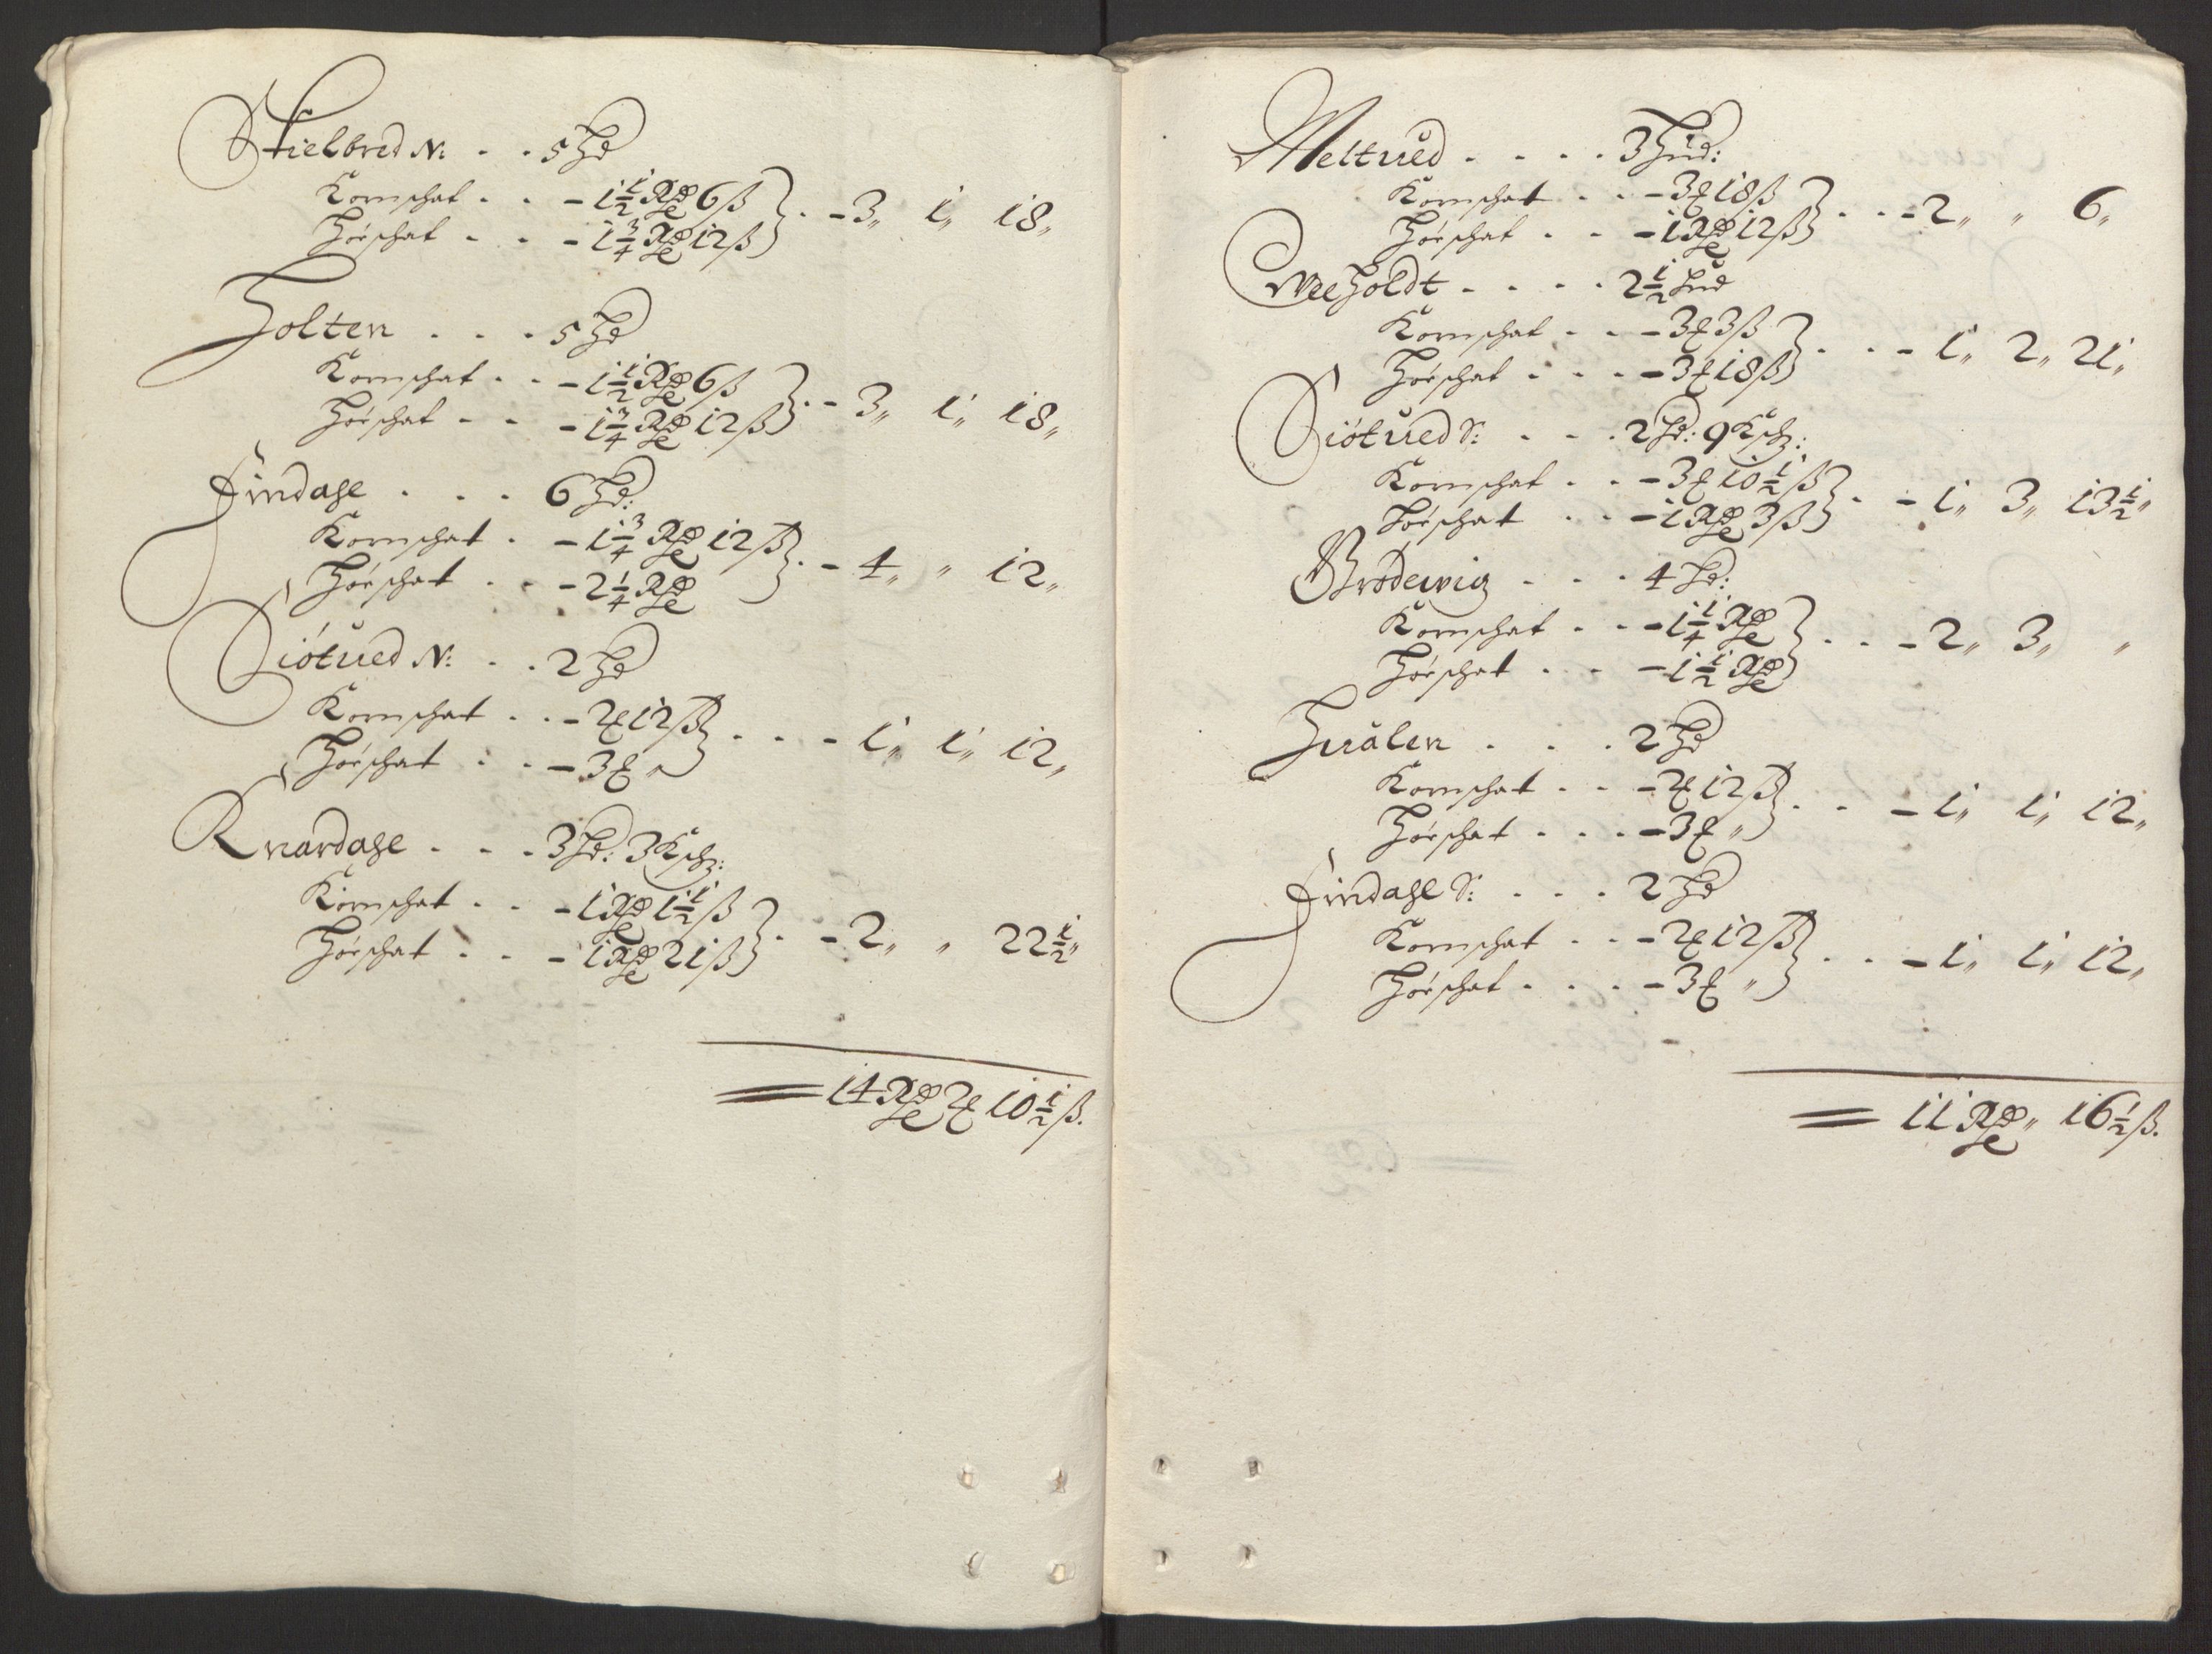 Stielbred N: . . 5 Hd
Kornschat . . - 1½ Rd 6 ß
Hörschat . . - 1¾ Rd 12 ß } . - 3„ 1„ 18„
Holten . . . 5 Hd
Kornschat . . - 1½ Rd 6 ß
Hörschat . . - 1¾ Rd 12 ß } . - 3„ 1„ 18„
Findahl . . . 6 Hd:
Kornschat . - 1¾ Rd 12 ß
Hörschat . . - 2¼ Rd } . - 4„ „ 12„
Siötued N: . . 2 Hd
Kornschat . . - 2 ₰ 12 ß
Hörschat . . - 3 ₰ „ } . . . - 1„ 1„ 12„
Knardahl . . . 3 Hd: 3 Ksch:
Kornschat . . - 1 Rd 1½ ß
Hörschat . . - 1 Rd 21 ß } . - 2„ „ 22½„
= 14 Rd 2 ₰ 10½ ß.
Meltued . . . . 3 Hud:
Kornschat . . - 3 ₰ 18 ß
Hörschat . . - 1 Rd 12 ß } . . - 2„ „ 6„
Weeholdt . . . . 2½ Hud
Kornschat . . - 3 ₰ 3 ß
Hörschat . . . - 3 ₰ 18 ß } . . - 1„ 2„ 21„
Siötued S: . . . 2 Hd: 9 Ksch:
Kornschat . . - 3 ₰ 10½ ß
Hörschat . . - 1 Rd 3 ß } . - 1„ 3„ 13½„
Brödewig . . . 4 Hd:
Kornschat . . - 1¼ Rd
Hörschat . . . - 1½ Rd } . . . - 2„ 3„ „
Hualen . . . 2 Hd
Kornschat . . - 2 ₰ 12 ß
Hörschat . . . - 3 ₰ „ } . . - 1„ 1„ 12„
Findahl S: . . . 2 Hd
Kornschat . . - 2 ₰ 12 ß
Hörschat . . . - 3 ₰ „ } . . - 1„ 1„ 12„
= 11 Rd „ 16½ ß.